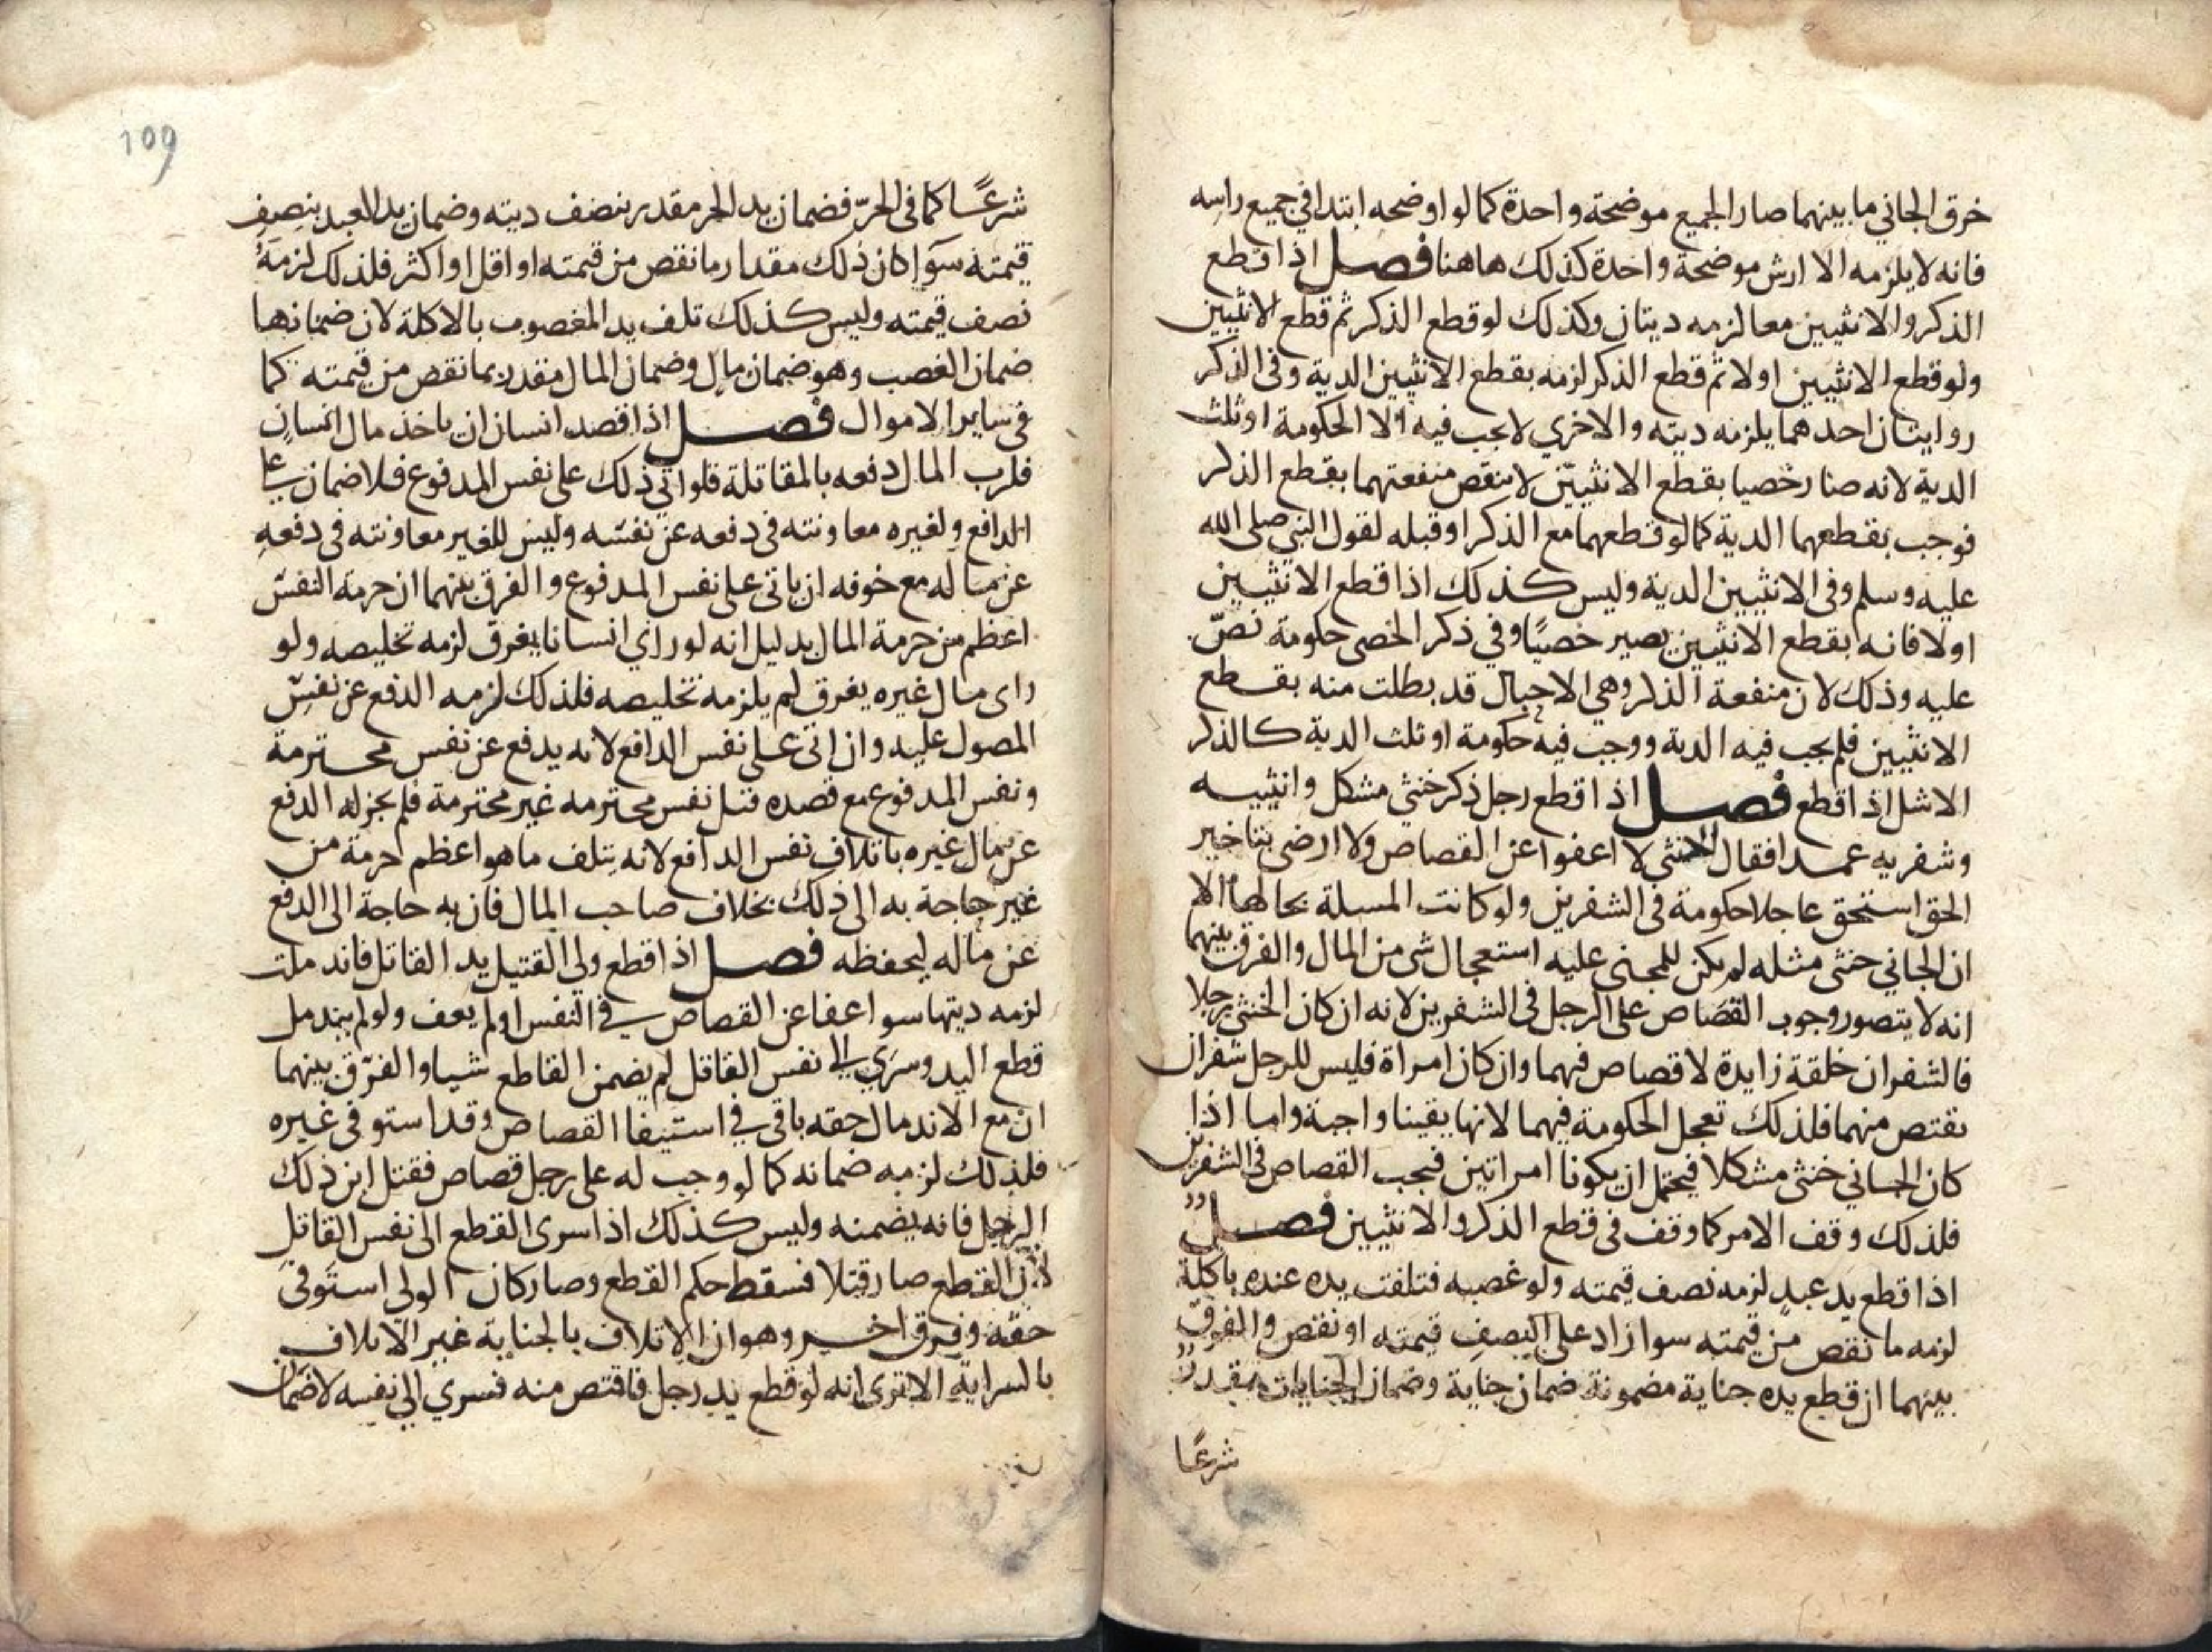 خرق الجاني ما بينهما صار الجميع موضحة واحدة كما لو اوضحه ابتدا في جميع راسه
فانه لا يلزمه الا ارش موضحة واحدة كذلك هاهنا فصل اذا قطع
الذكر والانثيين معا لزمه ديتان وكذلك لو قطع الذكر ثم قطع الانثيين
ولو قطع الانثيين اولا ثم قطع الذكر لزمه بقطع الانثيين الدية وفي الذكر
روايتان احدهما يلزمه ديته والاخري لا يجب فيه الا الحكومة او ثلث
الدية لانه صار خصيا بقطع الانثيين لا بنقص منفعتهما بقطع الذكر
فوجب بقطعهما الدية كما لو قطعهما مع الذكر او قبله لقول النبي صلى الله
عليه وسلم وفي الانثيين الدية وليس كذلك اذا قطع الانثيين
اولا فانه بقطع الانثيين يصير خصيًا وفي ذكر الخصي حكومة نصّ
عليه وذلك لان منفعة الذكر وهي الاحبال قد بطلت منه بقطع
الانثيين فلم يجب فيه الدية ووجب فيه حكومة او ثلث الدية كالذكر
الاشل اذا قطع فصل اذا قطع رجل ذكر خنثي مشكل وانثييه
وشفريه عمدا فقال الخنثي لا اعفوا عن القصاص ولا ارضي بتاخير
الحق استحق عاجلا حكومة في الشفرين ولو كانت المسلة بحالها الا
ان الجاني خنثى مثله لم يكن للمجنى عليه استعجال شي من المال والفرق بينهما
انه لا يتصور وجوب القصاص على الرجل في الشفرين لانه ان كان الخنثي رجلا
فالشفران خلقة زايدة لا قصاص فيهما وان كان امراة فليس للرجل شفران
يقتص منهما فلذلك تعجل الحكومة فيهما لانها يقينا واجبة واما اذا
كان الجاني خنثى مشكلا فيحتمل ان يكونا امراتين فيجب القصاص في الشفرين
فلذلك وقف الامر كما وقف في قطع الذكر والانثيين فصل
اذا قطع يد عبد لزمه نصف قيمته ولو غصبه فتلفت يده عنده باكلة
لزمه ما نقص من قيمته سوا زاد على النصف قيمته او نقص والفرق
بينهما ان قطع يده جناية مضمونة ضمان جناية وضمان الجنايات مقدر
شرعًا
109
شرعًا كما في الحرّ فضمان يد الحر مقدر بنصف ديته وضمان يد العبد بنصف
قيمته سوآ كان ذلك مقدار ما نقص من قيمته او اقل او اكثر فلذلك لزمه
نصف قيمته وليس كذلك تلف يد المغصوب بالاكلة لان ضمانها
ضمان الغصب وهو ضمان مال وضمان المال مقدر بما نقص من قيمته كما
في ساير الاموال فصل اذا قصد انسان ان ياخذ مال انسان
فلرب المال دفعه بالمقاتلة فلو اتي ذلك على نفس المدفوع فلا ضمان على
الدافع ولغيره معاونته في دفعه عن نفسه وليس للغير معاونته في دفعه
عن ماله مع خوفه ان ياتى على نفس المدفوع والفرق بينهما ان حرمة النفس
اعظم من حرمة المال بدليل انه لو راي انسانا يغرق لزمه تخليصه ولو
راى مال غيره يغرق لم يلزمه تخليصه فلذلك لزمه الدفع عن نفس
المصول عليه وان اتى على نفس الدافع لانه يدفع عن نفس محترمة
ونفس المدفوع مع قصده قتل نفس محترمه غير محترمة فلم يجز له الدفع
عن مال غيره باتلاف نفس الدافع لانه يتلف ما هو اعظم حرمة من
غير حاجة به الى ذلك بخلاف صاحب المال فان به حاجة الى الدفع
عن ماله ليحفظه فصل اذا قطع ولى القتيل يد القاتل فاندملت
لزمه ديتها سوا عفا عن القصاص في النفس او لم يعف ولو لم يندمل
قطع اليد وسرَي الى نفس القاتل لم يضمن القاطع شيا والفرّق بينهما
ان مع الاندمال حقه باقي في استيفا القصاص وقد استوفى غيره
فلذلك لزمه ضمانه كما لو وجب له على رجل قصاص فقتل ابن ذلك
الرجل فانه يضمنه وليس كذلك اذا سرى القطع الى نفس القاتل
لان القطع صار قتلا فسقط حكم القطع وصار كان الولى استوفى
حقه وفرق اخر وهو ان الاتلاف بالجناية غير الاتلاف
بالسراية الا ترى انه لو قطع يد رجل فاقتص منه فسري الي نفسه لا ضمان